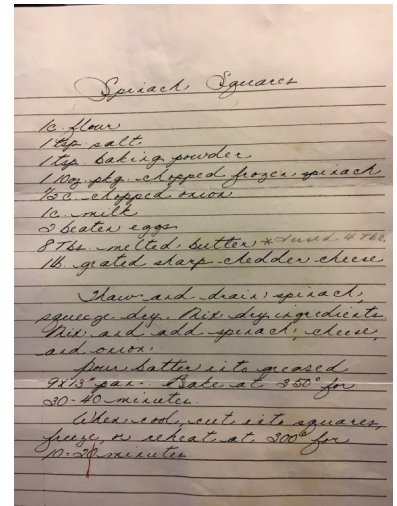 Spinach Squares
1c. flour
1 tsp. salt
1 tsp. baking powder
1 10oz. pkg. chopped frozen spinach
1/2 c. chopped onion
1c. milk
2 beaten eggs
8 Tbs. melted butter *I used 4 Tbs.
1lb. grated sharp chedder cheese
Thaw and drain spinach,
squeeze dry. Mix dry ingredients
Mix and add spinach, cheese,
and onion.
Pour batter into greased
9x13" pan. Bake at 350° for
30-40 minutes.
When cool, cut into squares,
freeze, or reheat at 300° for
10-20 minutes.